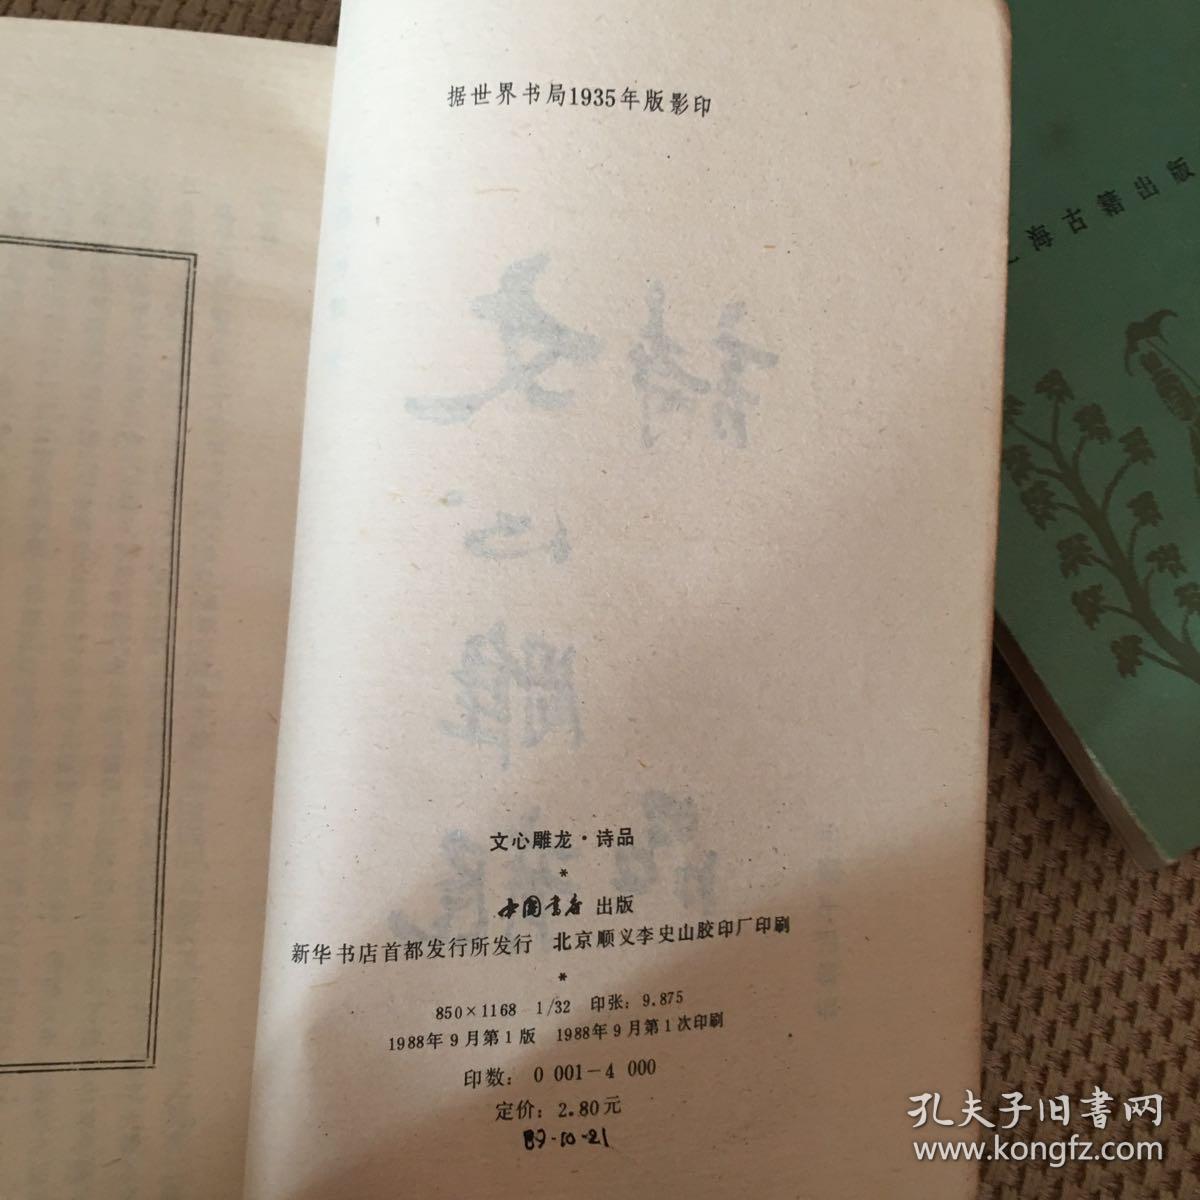 据世界书局1935年版影印
海古籍出版
文心雕龙·诗品
*
中国书店 出版
新华书店首都发行所发行 北京顺义李史山胶印厂印刷
*
850×1168 1/32 印张：9.875
1988年9月第1版 1988年9月第1次印刷
印数：0 001—4 000
定价：2.80元
89-10-21
孔夫子旧书网
www.kongfz.com